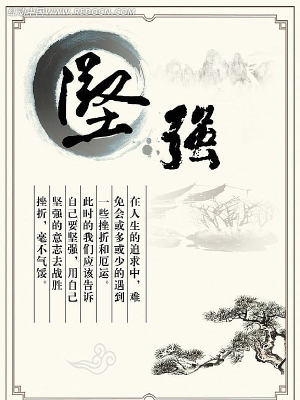 红动中国 WWW.REDOCN.COM
坚强
在人生的追求中，难
免会或多或少的遇到
一些挫折和厄运。
此时的我们应该告诉
自己要坚强，用自己
坚强的意志去战胜
挫折，毫不气馁。